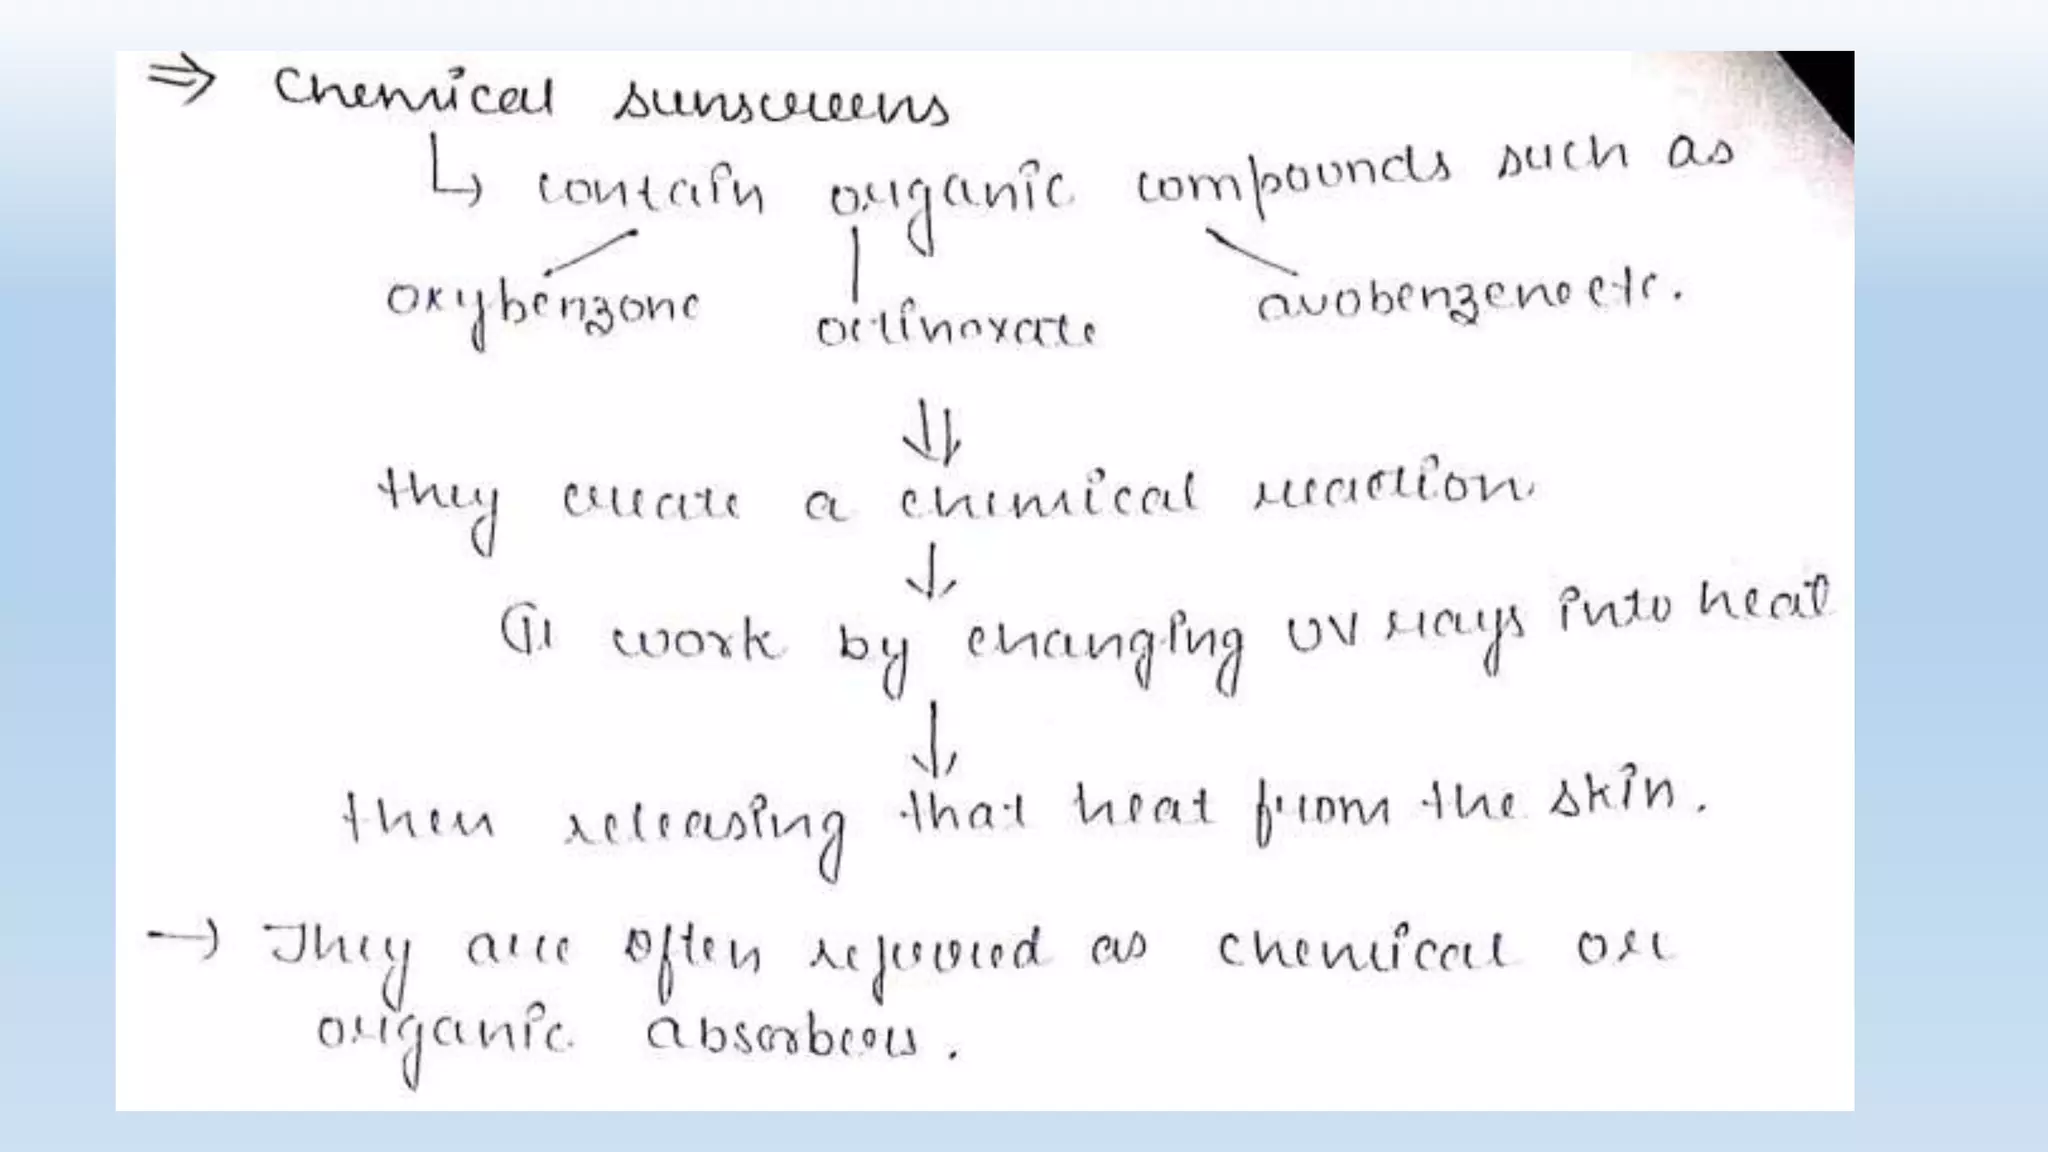 ⇒ Chemical sunscreens
↳ contain organic compounds such as
oxybenzone octinoxate avobenzene etc.
⇓
they create a chemical reaction
↓
& work by changing UV rays into heat
↓
then releasing that heat from the skin.
→ They are often referred as chemical or
organic absorbers.